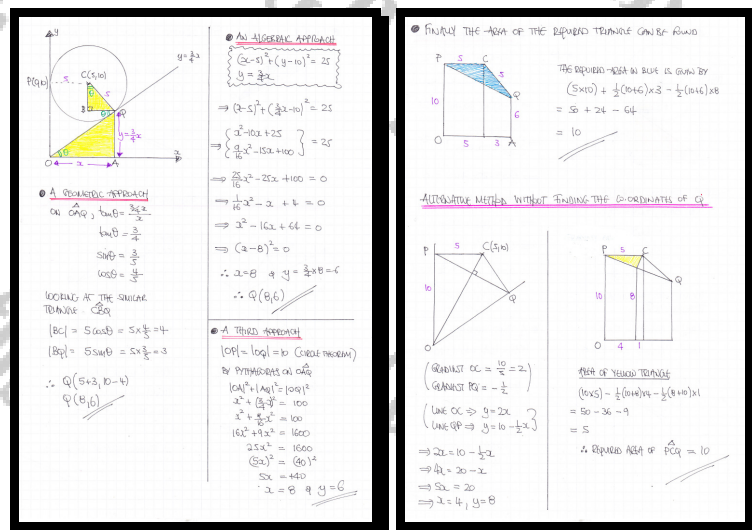 y
y=¾x
C(5,10)
P(0,10)
5
5
θ
B
θ
Q
y=¾x
θ
O
x
A
x
● A GEOMETRIC APPROACH
ON OÂQ, tanθ = ¾x/x
tanθ = 3/4
sinθ = 3/5
cosθ = 4/5
LOOKING AT THE SIMILAR
TRIANGLE CB̂Q
|BC| = 5cosθ = 5×4/5 = 4
|BQ| = 5sinθ = 5×3/5 = 3
∴ Q(5+3, 10-4)
Q(8,6)
● AN ALGEBRAIC APPROACH
(x-5)²+(y-10)² = 25
y = ¾x
⇒ (x-5)²+(¾x-10)² = 25
⇒ {x²-10x+25
9/16x²-15x+100} = 25
⇒ 25/16x²-25x+100 = 0
⇒ 1/16x²-x+4 = 0
⇒ x²-16x+64 = 0
⇒ (x-8)² = 0
∴ x=8 & y=¾×8=6
∴ Q(8,6)
● A THIRD APPROACH
|OP| = |OQ| = 10 (CIRCLE THEOREM)
BY PYTHAGORAS ON OÂQ
|OA|²+|AQ|² = |OQ|²
x²+(¾x)² = 100
x²+9/16x² = 100
16x²+9x² = 1600
25x² = 1600
(5x)² = (40)²
5x = +40
x = 8 & y = 6
● FINALLY THE AREA OF THE REQUIRED TRIANGLE CAN BE FOUND
P
5
C
5
Q
10
6
O
5
3
A
THE REQUIRED AREA IN BLUE IS GIVEN BY
(5×10) + ½(10+6)×3 - ½(10+6)×8
= 50 + 24 - 64
= 10
ALTERNATIVE METHOD WITHOUT FINDING THE CO-ORDINATES OF Q
P
5
C(5,10)
10
Q
O
(GRADIENT OC = 10/5 = 2
GRADIENT PQ = -½)
(LINE OC ⇒ y=2x
LINE QP ⇒ y=10-½x)
⇒ 2x = 10-½x
⇒ 4x = 20-x
⇒ 5x = 20
⇒ x=4, y=8
P
5
C
Q
10
8
O
4
1
AREA OF YELLOW TRIANGLE
(10×5) - ½(10+8)×4 - ½(8+10)×1
= 50-36-9
= 5
∴ REQUIRED AREA OF PĈQ = 10